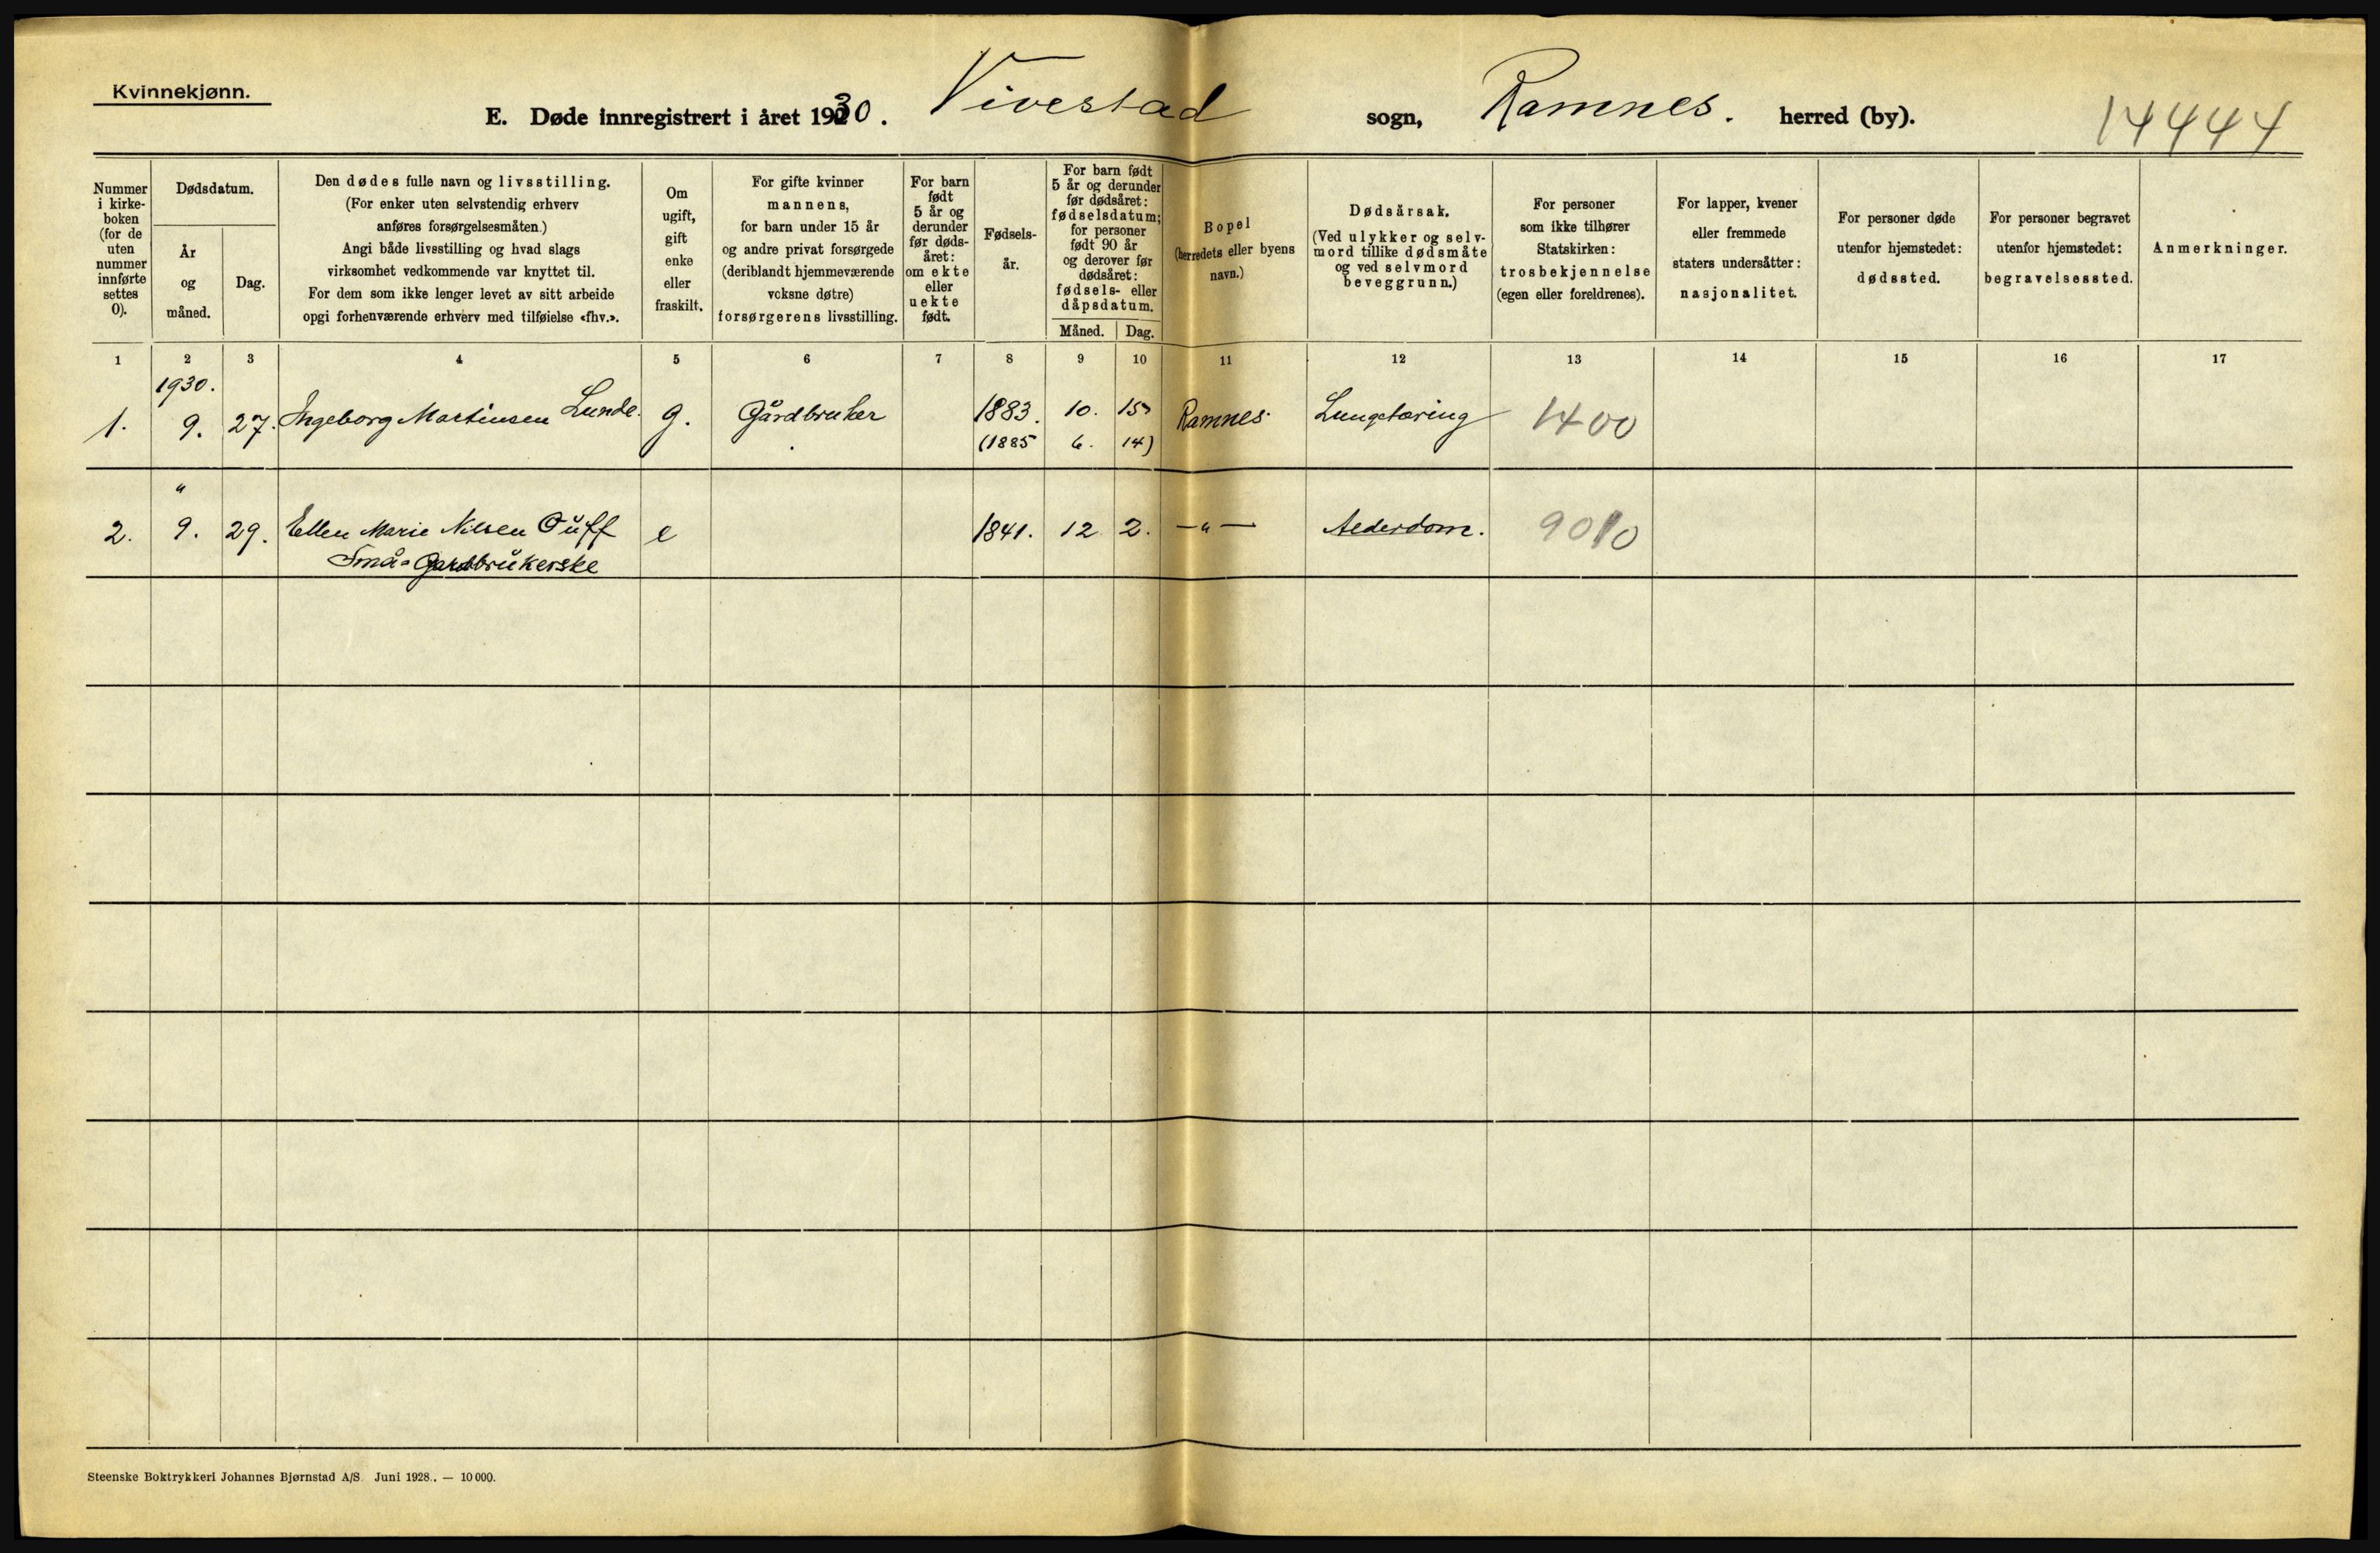 Kvinnekjønn.
E. Døde innregistrert i året 1930. Vivestad sogn, Ramnes. herred (by). 14444
Nummer i kirke- boken (for de uten nummer innførte settes 0).
Dødsdatum.
År og måned.
Dag.
Den dødes fulle navn og livsstilling.
(For enker uten selvstendig erhverv
anføres forsørgelsesmåten.)
Angi både livsstilling og hvad slags
virksomhet vedkommende var knyttet til.
For dem som ikke lenger levet av sitt arbeide
opgi forhenværende erhverv med tilføielse «fhv.».
Om ugift, gift enke eller fraskilt.
For gifte kvinner
mannens,
for barn under 15 år
og andre privat forsørgede
(deriblandt hjemmeværende
voksne døtre)
forsørgerens livsstilling.
For barn født 5 år og derunder før døds- året: om ekte eller uekte født.
Fødsels- år.
For barn født
5 år og derunder
før dødsåret:
fødselsdatum;
for personer
født 90 år
og derover før
dødsåret:
fødsels- eller
dåpsdatum.
Måned. Dag.
Bopel
(herredets eller byens
navn.)
Dødsårsak.
(Ved ulykker og selv-
mord tillike dødsmåte
og ved selvmord
beveggrunn.)
For personer
som ikke tilhører
Statskirken:
trosbekjennelse
(egen eller foreldrenes).
For lapper, kvener
eller fremmede
staters undersåtter:
nasjonalitet.
For personer døde
utenfor hjemstedet:
dødssted.
For personer begravet
utenfor hjemstedet:
begravelsessted.
Anmerkninger.
1 2 3 4 5 6 7 8 9 10 11 12 13 14 15 16 17
1930.
1. 9. 27. Ingeborg Martinsen Lunde. g. Gårdbruker 1883. 10. 15 Ramnes Lungetæring 1400
(1885 6. 14)
"
2. 9. 29. Ellen Marie Nilsen e 1841. 12 2. —"— Alderdom. 9010
Små-Gardbrukerske
Steenske Boktrykkeri Johannes Bjørnstad A/S. Juni 1928. — 10000.